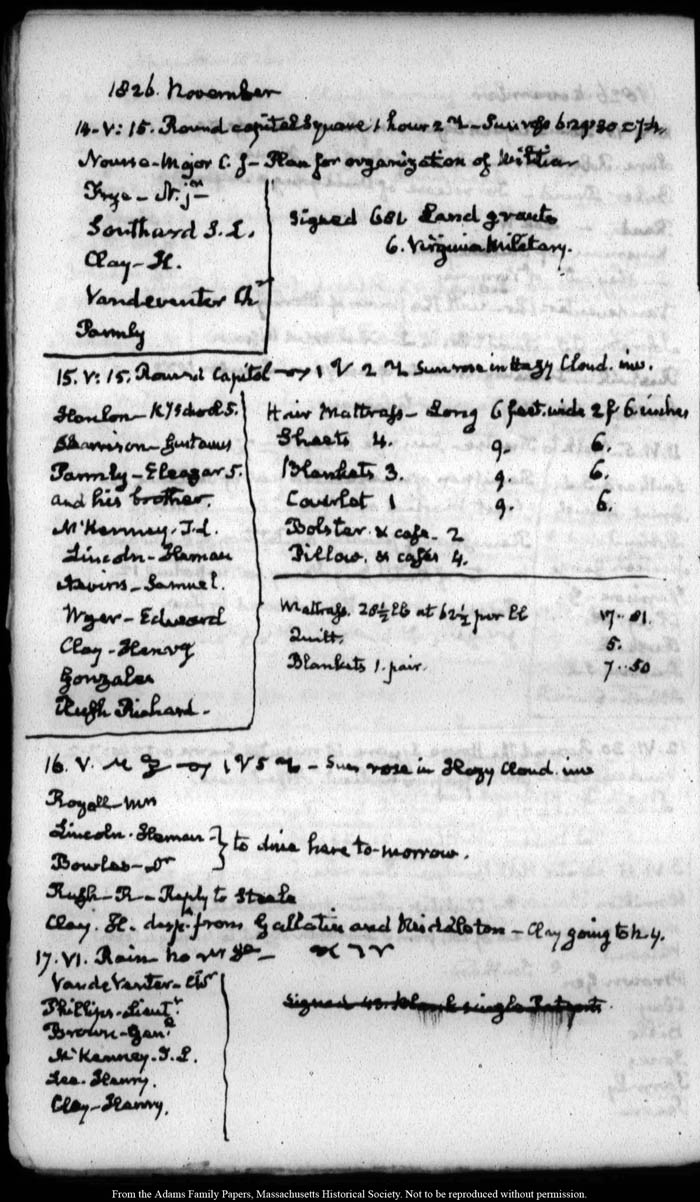 1826. November
14. V: 15. Round capitol Square 1 hour 2
Nourse - Major C. J - Plan for organization of Militia
Frye - N. jr
Southard S. L.
Clay - H.
Vandeventer Chr
Parmly
Signed 681 Land grants
6. Virginia Military.
15. V: 15. Round Capitol 1 2 Sun rose in Hazy Cloud. inv.
Hanlon
Harrison - Gustavus
Parmly - Eleazar 5.
and his brother.
McKenney. T. L.
Lincoln - Heman
Nevins - Samuel.
Wyer - Edward
Clay - Henry
Gonzales
Rush Richard -
Hair Mattrass - Long 6 feet. wide 2 f 6 inches
Sheets 4. 9. 6.
Blankets 3. 9. 6.
Coverlet 1 9. 6.
Bolster. & case. 2
Pillow. & cases 4.
Mattrass. 28½ lb at 62½ per lb 17 - 81.
Quilt. 5.
Blankets 1. pair. 7 .. 50
16. V. 1 5 - Sun rose in Hazy Cloud. inv
Royall - Mrs
Lincoln. Heman -
Bowles - Dr
to dine here to-morrow.
Rush - R - Reply to Steele
Clay. H. despt. from Gallatin and Middleton - Clay going to N Y.
17. VI. Rain no
VandeVenter - Chr
Phillips - Lieutt.
Brown - Genl
McKenney. T. L.
Lee. Henry.
Clay - Henry.
Signed 48. blank single Patents.
From the Adams Family Papers, Massachusetts Historical Society. Not to be reproduced without permission.